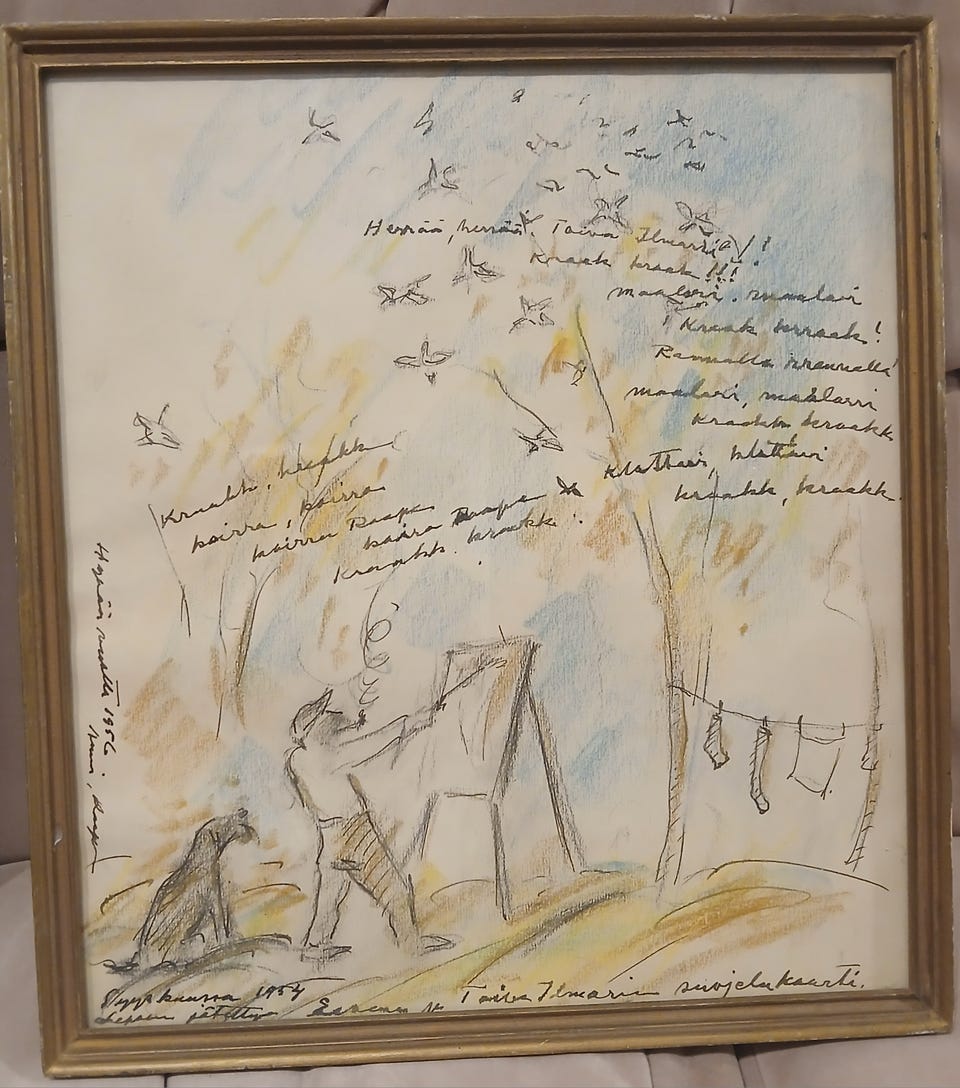 Herrää, herrää! Toivo Ilmarri!!
Kraak kraak!!!
maalari. maalari
Kraak krraak!
Rannalla rrannalla
maalari, maalarri
Kraakk kraakk
Klattavi, klattavi
kraakk, kraakk.
Kraakk, kraakk
koirra, koirra
koirra Raape
koira Raape
Kraakk. kraakk!
1956
Syyskuussa 1954
Toivo Ilmarin suojelukaarti.